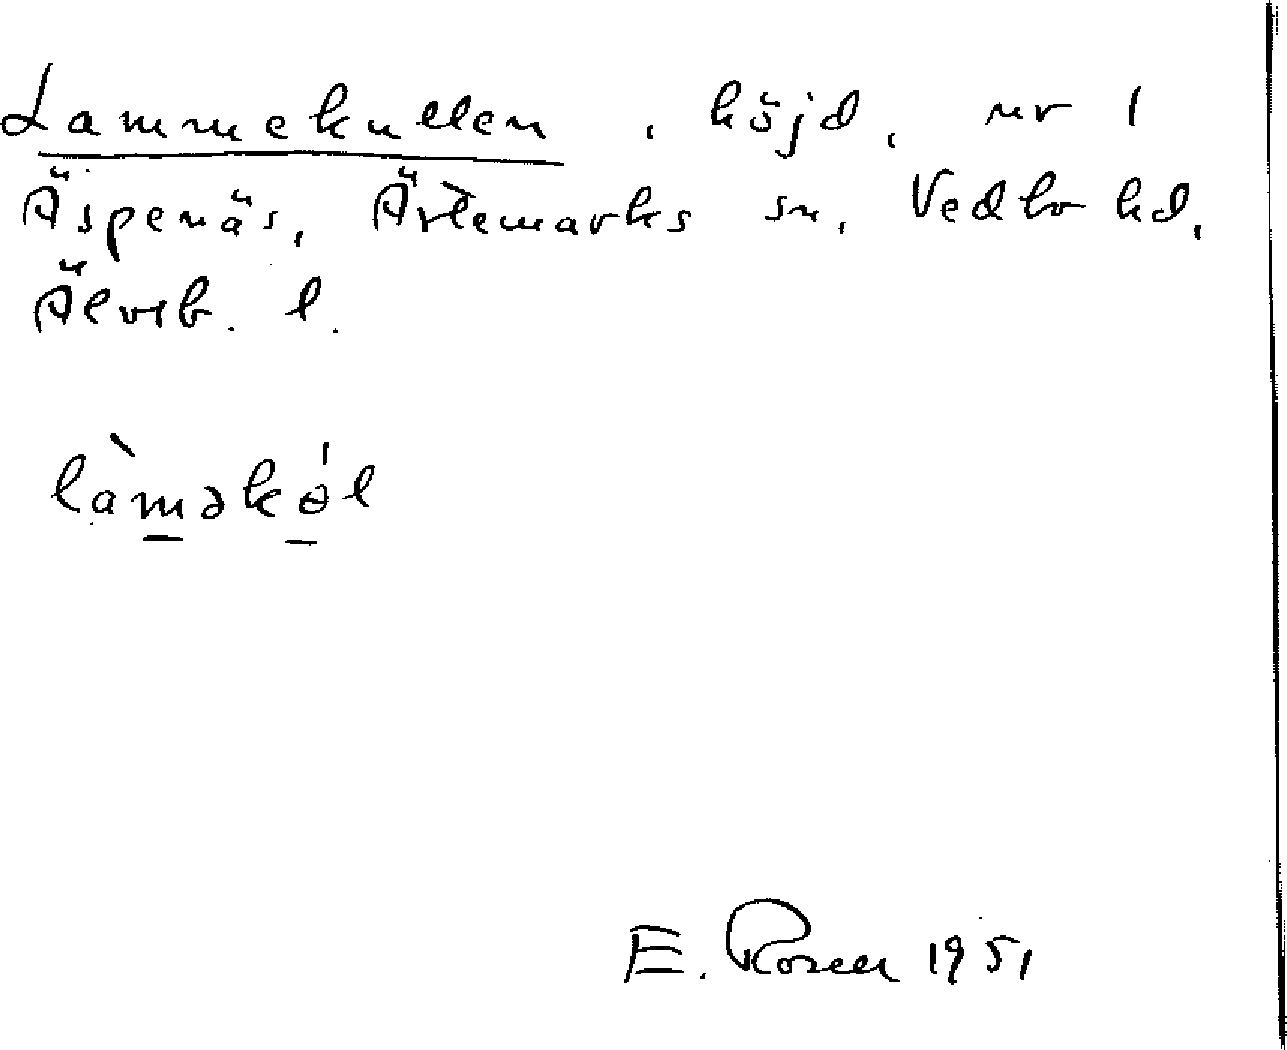 Lammekullen, höjd, nr 1
Äspenäs, Ärtemarks sn, Vedbo hd,
Älvsb. l.
làməkɵ́l
E. Rosell 1951